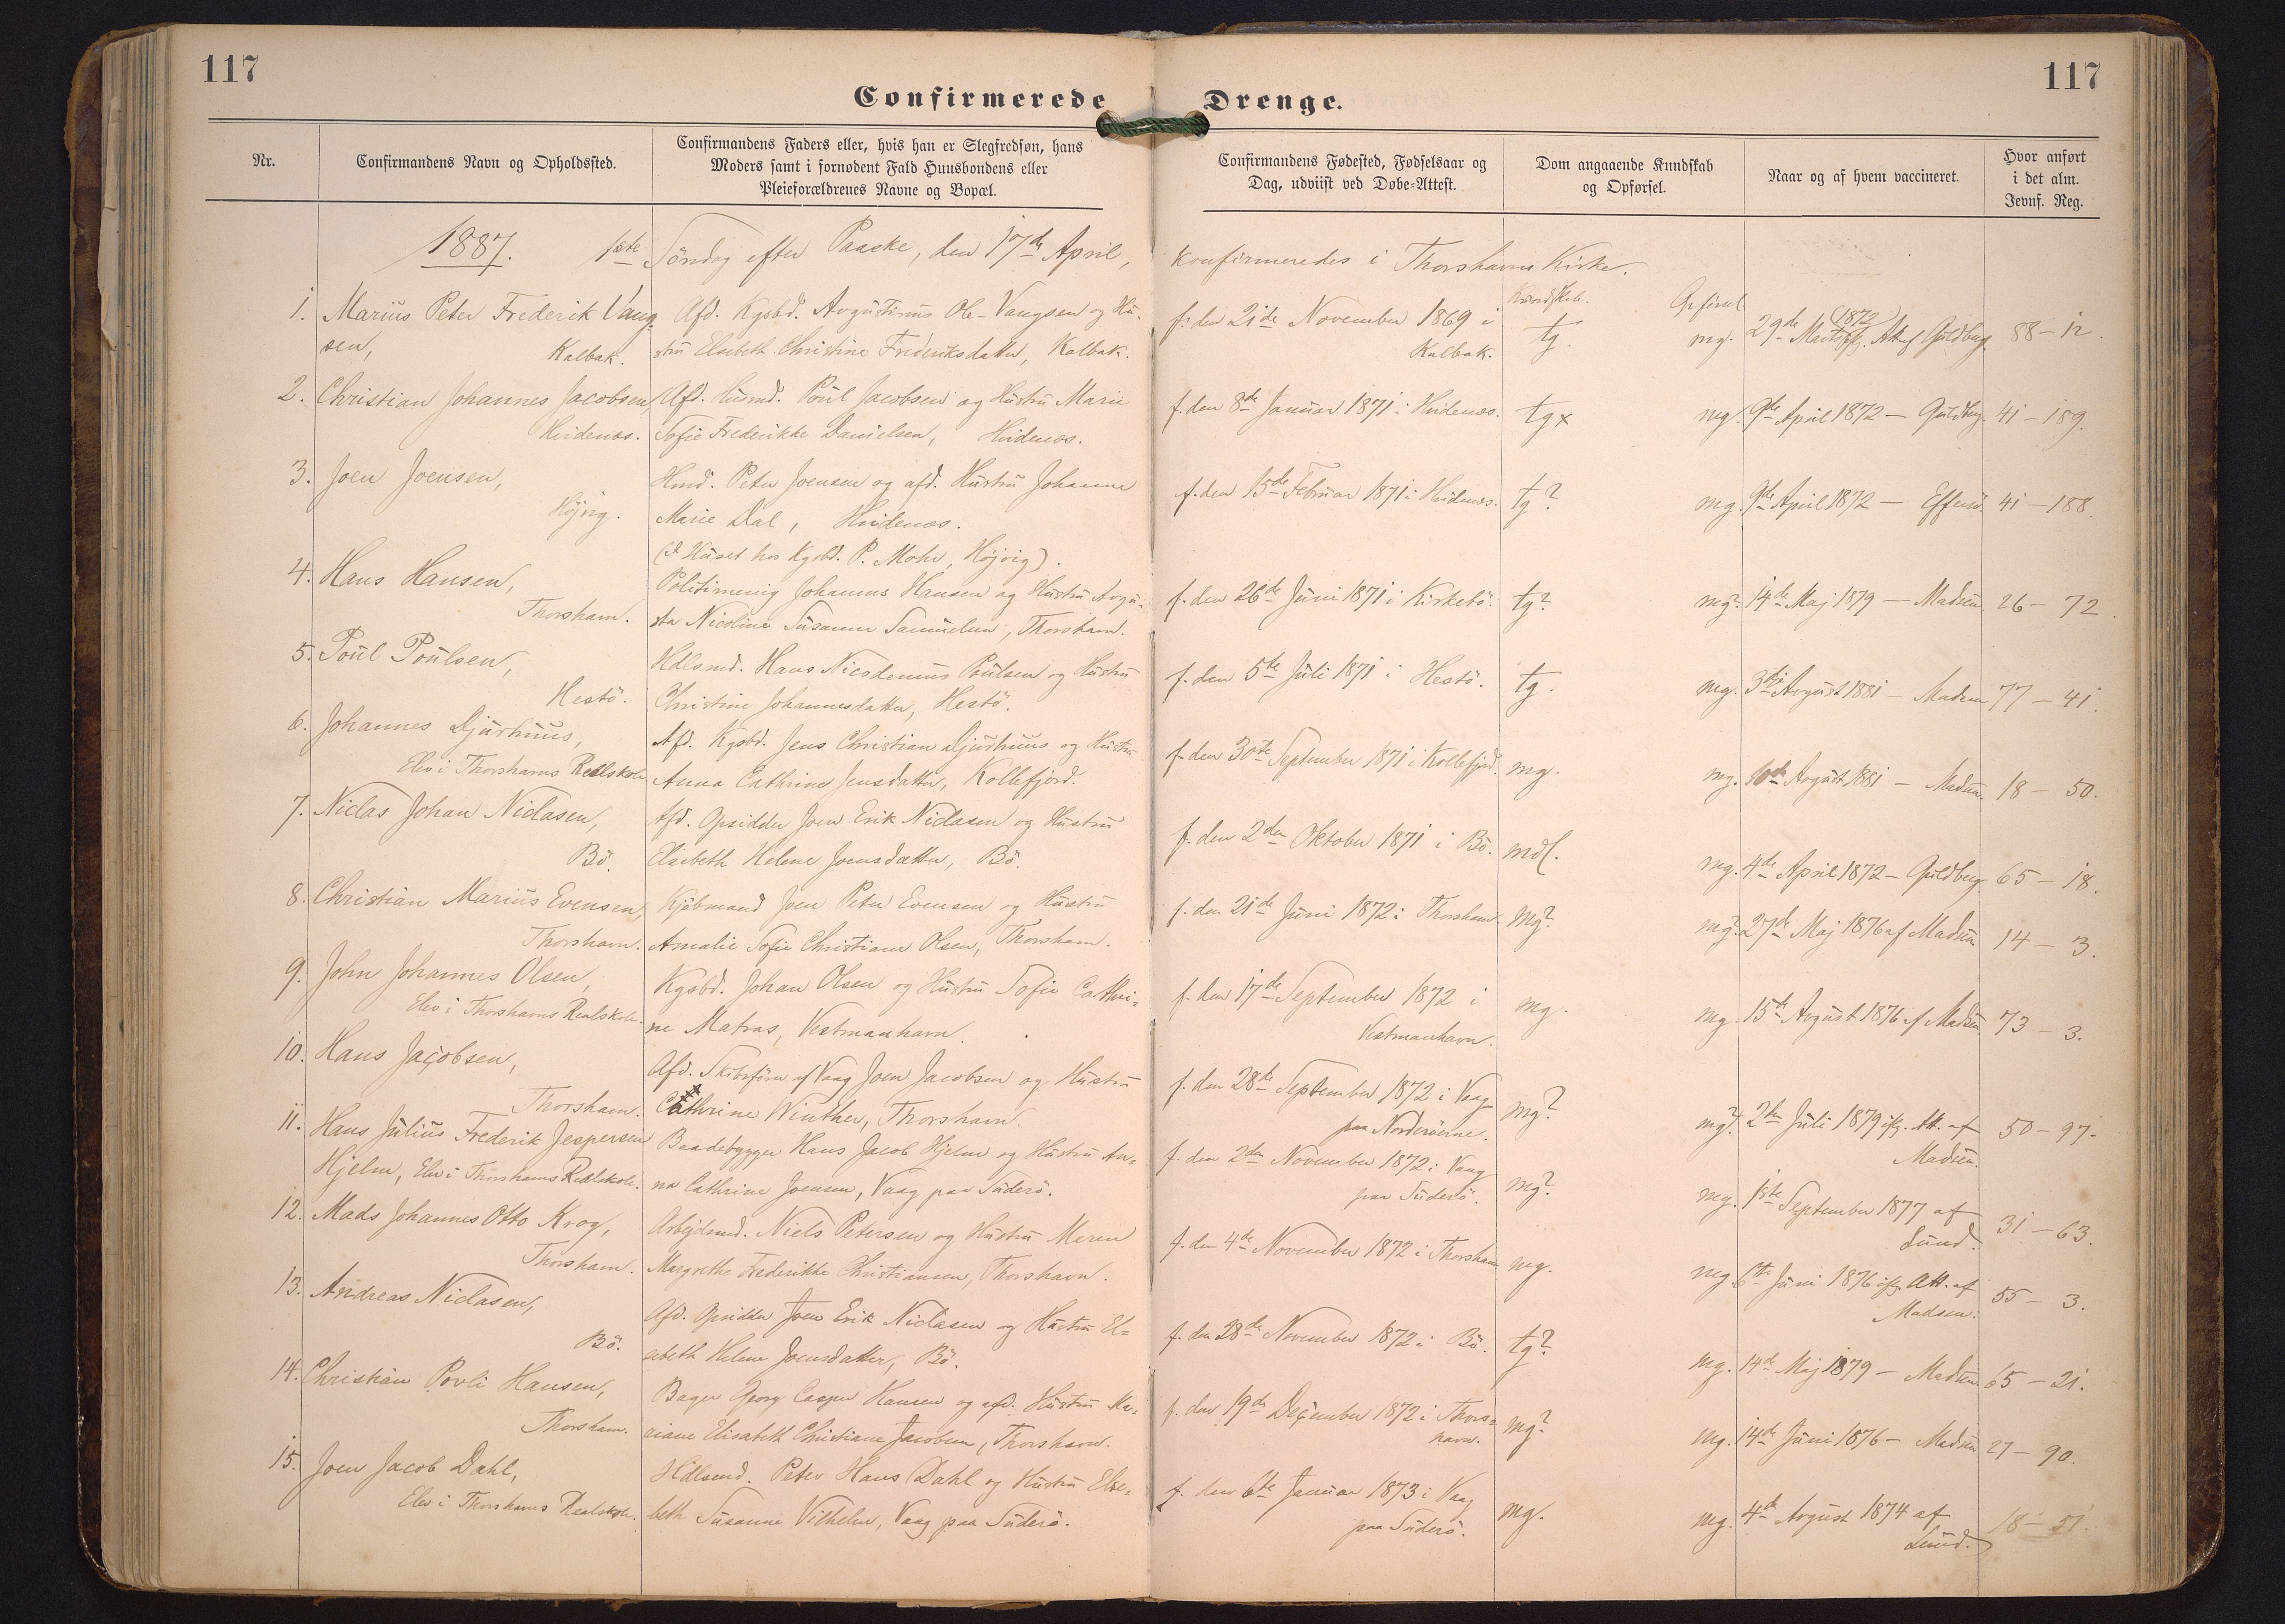 117
117
Confirmerede Drenge.
Nr.
Confirmandens Navn og Opholdssted.
Confirmandens Faders eller, hvis han er Slegfredsøn, hans
Moders samt i fornødent Fald Huusbondens eller
Pleieforældrenes Navne og Bopæl.
Confirmandens Fødested, Fødselsaar og
Dag, udviist ved Døbe-Attest.
Dom angaaende Kundskab
og Opførsel.
Naar og af hvem vaccineret.
Hvor anført
i det alm.
Jevnf. Reg.
1887. 1ste Söndag efter Paaske, den 17de April, konfirmeredes i Thorshavns Kirke.
Kundskab. Opförsel.
1. Marius Peter Frederik Vang-
sen, Kalbak.
Afd. Kgsbd. Avgustinus Ole Vangsen og Hu-
stru Elsebeth Christine Frederiksdatter, Kalbak.
f. den 21de November 1869 i
Kalbak.
tg. mg.
29de Marts (1872) ifg. Att. af Guldberg.
88 - 12.
2. Christian Johannes Jacobsen,
Hvidenæs.
Afd. Husmd. Poul Jacobsen og Hustru Marie
Sofie Frederikke Danielsen, Hvidenæs.
f. den 8de Januar 1871 i Hvidenæs.
tgx mg.
9de April 1872 — Guldberg.
41 - 189.
3. Joen Joensen,
Höjvig.
Hmd. Peter Joensen og afd. Hustru Johanne
Marie Dal, Hvidenæs.
(I Huset hos Kgsbd. P. Mohr, Höjvig).
f. den 15de Februar 1871 i Hvidenæs.
tg? mg.
9de April 1872 —
41 - 188.
4. Hans Hansen,
Thorshavn.
Politimenig Johannes Hansen og Hustru Avgu-
sta Nicoline Susanne Samuelsen, Thorshavn.
f. den 26de Juni 1871 i Kirkebö.
tg? mg?
14de Maj 1879 — Madsen.
26 - 72.
5. Poul Poulsen,
Hestö.
Hdlsmd. Hans Nicodemus Poulsen og Hustru
Christine Johannesdatter, Hestö.
f. den 5te Juli 1871 i Hestö.
tg. mg.
3die Avgust 1881 — Madsen
77 - 41.
6. Johannes Djurhuus,
Elev i Thorshavns Realskole.
Afd. Kgsbd. Jens Christian Djurhuus og Hustru
Anna Cathrine Jensdatter, Kollefjord.
f. den 30te September 1871 i Kollefjord.
mg. mg.
10de Avgust 1881 — Madsen.
18 - 50.
7. Niclas Johan Niclasen,
Bö.
Afd. Opsidder Joen Erik Niclasen og Hustru
Elsebeth Helene Joensdatter, Bö.
f. den 2den Oktober 1871 i Bö.
mdl. mg.
4de April 1872 — Guldberg.
65 - 18.
8. Christian Marius Evensen,
Thorshavn.
Kjöbmand Joen Peter Evensen og Hustru
Amalie Sofie Christiane Olsen, Thorshavn.
f. den 21de Juni 1872 i Thorshavn.
mg? mg?
27de Maj 1876 af Madsen.
14 - 3.
9. John Johannes Olsen,
Elev i Thorshavns Realskole.
Kgsbd. Johan Olsen og Hustru Sofie Cathri-
ne Matras, Vestmanhavn.
f. den 17de September 1872 i
Vestmanhavn.
mg. mg.
15de Avgust 1876 af Madsen
73 - 3.
10. Hans Jacobsen,
Thorshavn.
Afd. Skibsförer af Vaag Joen Jacobsen og Hustru
Cathrine Winther, Thorshavn.
f. den 28de September 1872 i Vaag
paa Norderöerne.
mg? mg?
2den Juli 1879 ifg. Att. af
Madsen.
50 - 97.
11. Hans Julius Frederik Jespersen
Hjelm, Elev i Thorshavns Realskole.
Baadebygger Hans Jacob Hjelm og Hustru An-
na Cathrine Joensen, Vaag paa Suderö.
f. den 2den November 1872 i Vaag
paa Suderö.
mg? mg.
1ste September 1877 af
Lund.
31 - 63.
12. Mads Johannes Otto Krog,
Thorshavn.
Arbejdsmd. Niels Petersen og Hustru Maren
Margrethe Frederikke Christiansen, Thorshavn.
f. den 4de November 1872 i Thorshavn
mg. mg.
6te Juni 1876 ifg. Att. af
Madsen.
55 - 3.
13. Andreas Niclasen,
Bö.
Afd. Opsidder Joen Erik Niclasen og Hustru El-
sebeth Helene Joensdatter, Bö.
f. den 28de November 1872 i Bö.
tg? mg.
14de Maj 1879 — Madsen
65 - 21.
14. Christian Povli Hansen,
Thorshavn.
Bager Georg Casper Hansen og afd. Hustru Ma-
riane Elisabeth Christiane Jacobsen, Thorshavn.
f. den 19de December 1872 i Thors-
havn.
mg? mg.
14de Juni 1876 — Madsen
27 - 90.
15. Joen Jacob Dahl,
Elev i Thorshavns Realskole.
Hdlsmd. Peter Hans Dahl og Hustru Else-
beth Susanne Vilhelm, Vaag paa Suderö.
f. den 6te Januar 1873 i Vaag
paa Suderö.
mg. mg.
4de Avgust 1874 af
Lund.
18 - 51.